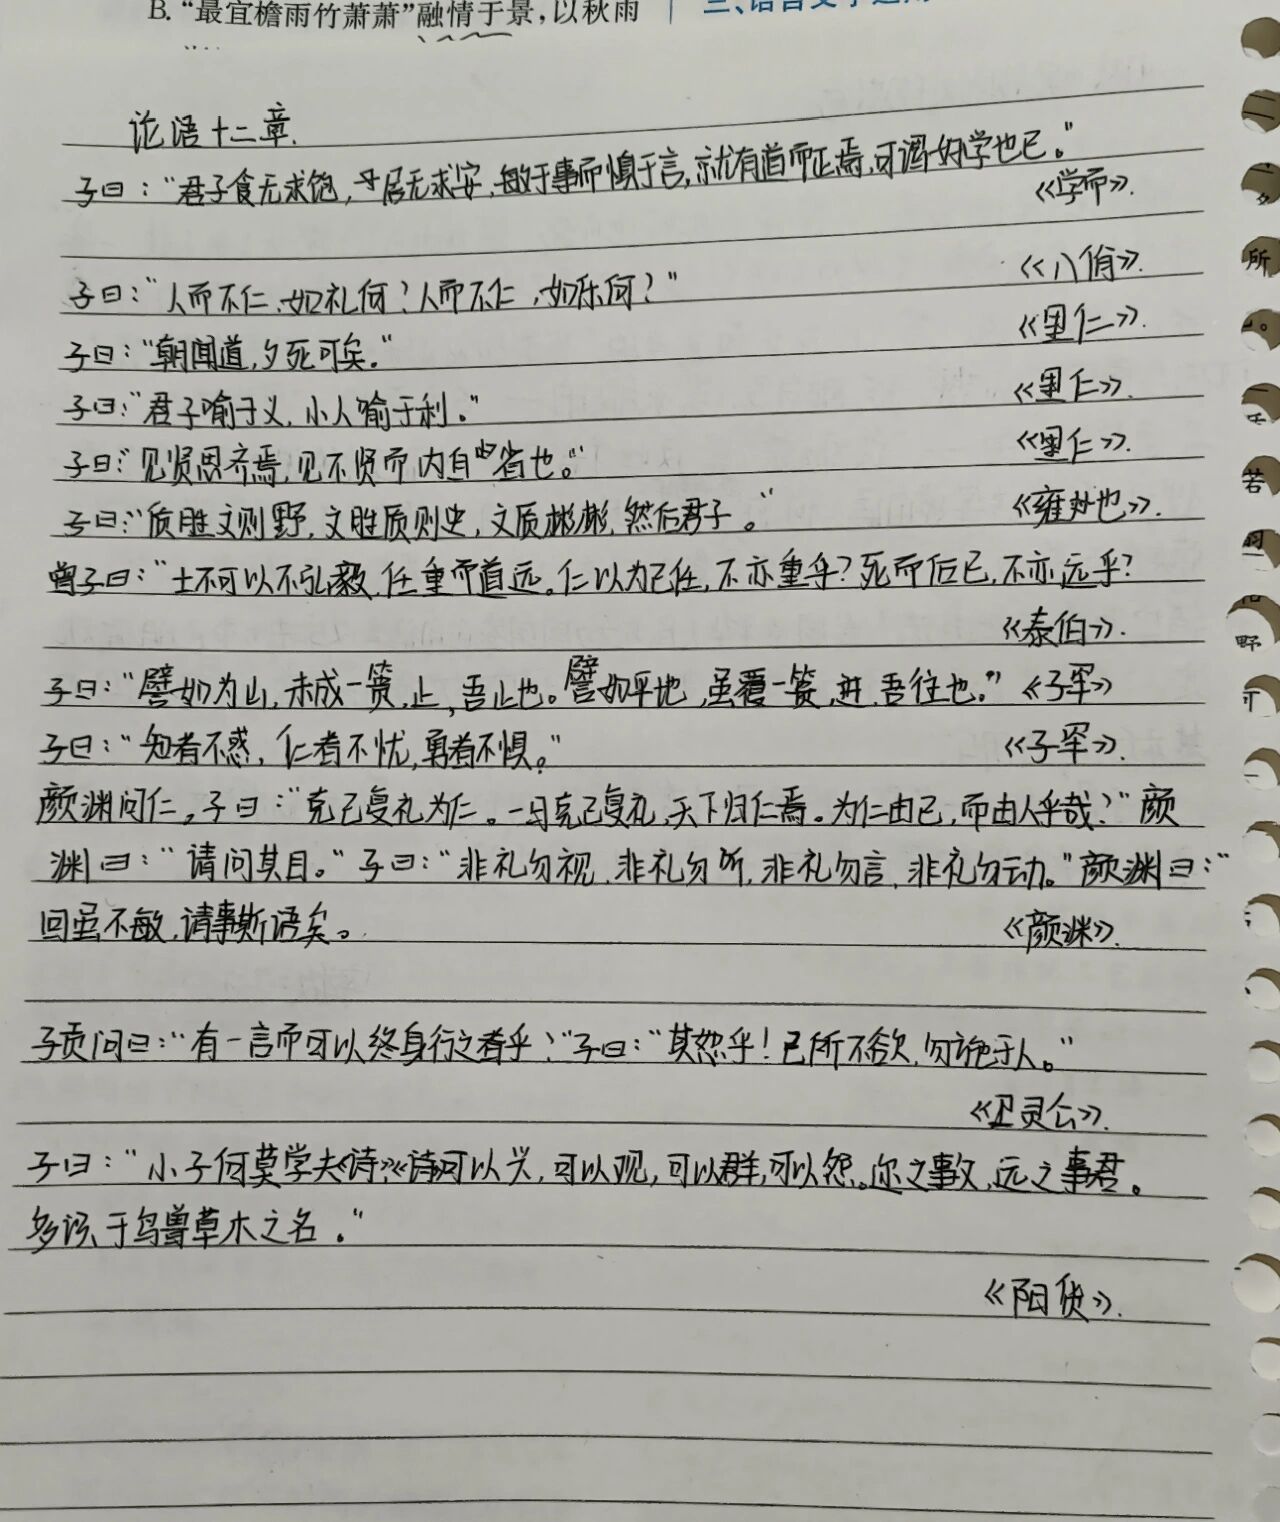 B. “最宜檐雨竹萧萧”融情于景，以秋雨
论语十二章.
子曰：“君子食无求饱，居无求安，敏于事而慎于言，就有道而正焉，可谓好学也已。”
《学而》.
子曰：“人而不仁、如礼何？人而不仁，如乐何？”
《八佾》.
子曰：“朝闻道，夕死可矣。”
《里仁》.
子曰：“君子喻于义，小人喻于利。”
《里仁》.
子曰“见贤思齐焉，见不贤而内自省也。”
《里仁》.
子曰：“质胜文则野，文胜质则史，文质彬彬，然后君子。”
《雍也》.
曾子曰：“士不可以不弘毅，任重而道远。仁以为己任，不亦重乎？死而后已，不亦远乎？
《泰伯》.
子曰：“譬如为山，未成一篑，止，吾止也。譬如平地，虽覆一篑，进，吾往也。”《子罕》
子曰：“知者不惑，仁者不忧，勇者不惧。”
《子罕》.
颜渊问仁，子曰：“克己复礼为仁。一日克己复礼，天下归仁焉。为仁由己，而由人乎哉？”颜
渊曰：“请问其目。”子曰：“非礼勿视，非礼勿听，非礼勿言，非礼勿动。”颜渊曰：“
回虽不敏，请事斯语矣。
《颜渊》.
子贡问曰：“有一言而可以终身行之者乎？”子曰：“其恕乎！己所不欲，勿施于人。”
《卫灵公》.
子曰：“小子何莫学夫《诗》？《诗》可以兴，可以观，可以群，可以怨。迩之事父，远之事君。
多识于鸟兽草木之名。”
《阳货》.
所
若
野